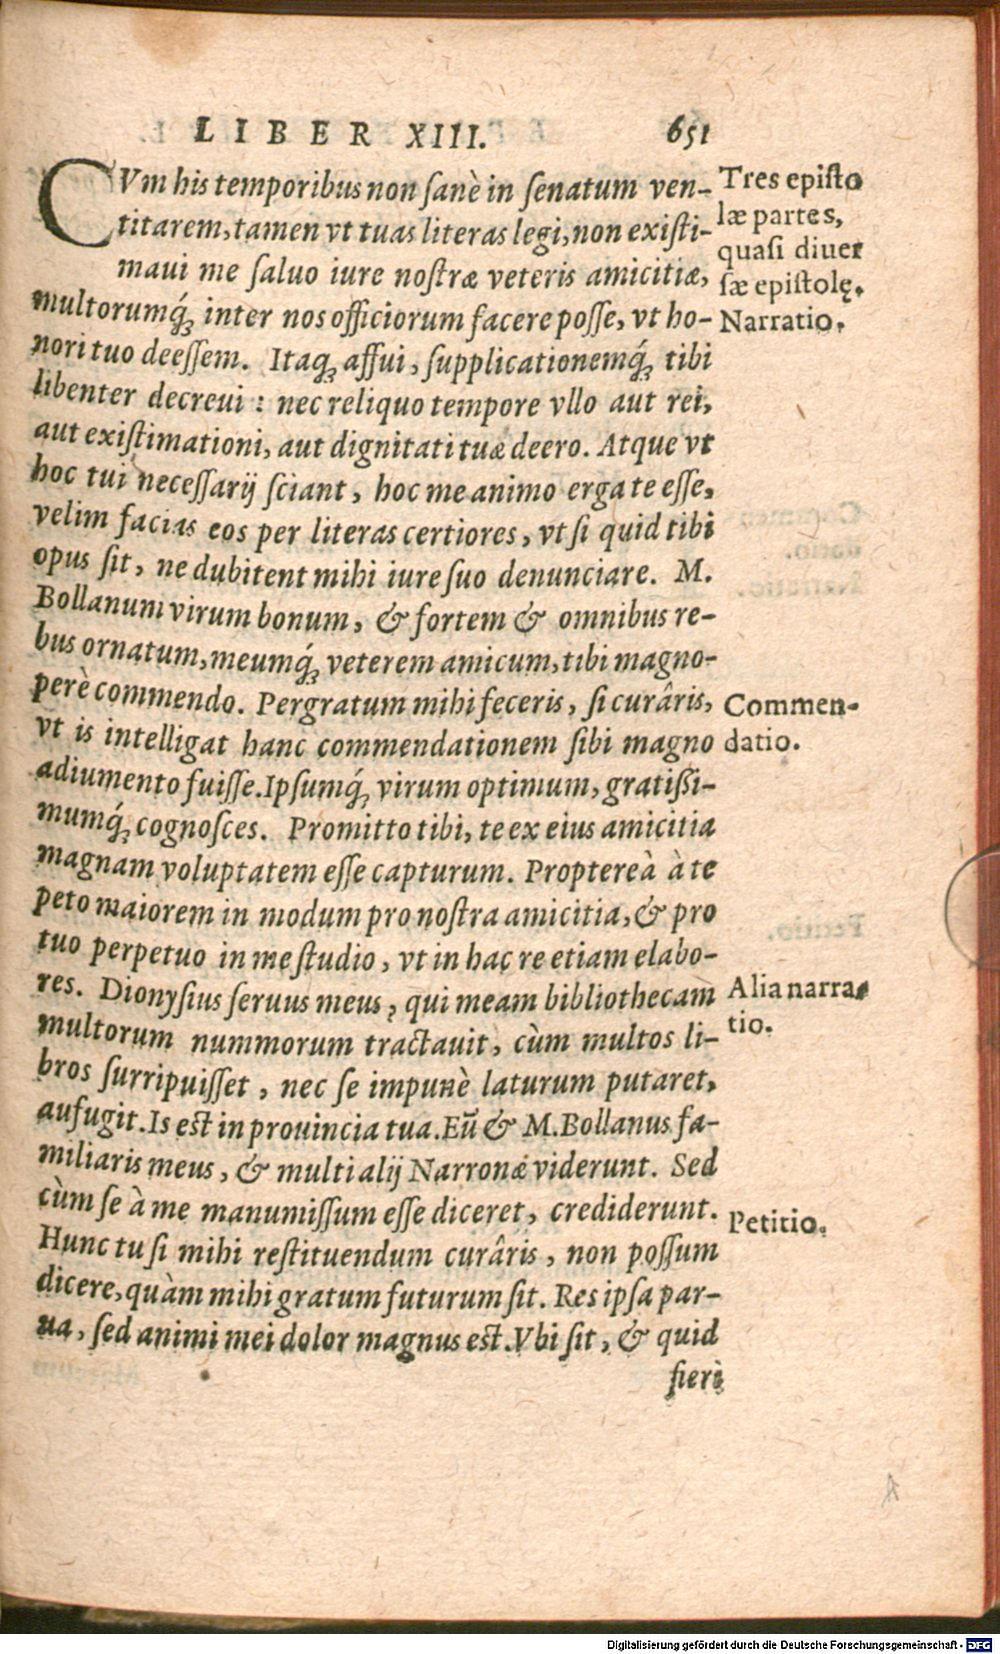 LIBER XIII. 651
CVm his temporibus non sanè in senatum ven-
titarem, tamen vt tuas literas legi, non existi-
maui me saluo iure nostræ veteris amicitiæ,
multorumq́; inter nos officiorum facere posse, vt ho-
nori tuo deessem. Itaq; affui, supplicationemq́; tibi
libenter decreui: nec reliquo tempore vllo aut rei,
aut existimationi, aut dignitati tuæ deero. Atque vt
hoc tui necessarij sciant, hoc me animo erga te esse,
velim facias eos per literas certiores, vt si quid tibi
opus sit, ne dubitent mihi iure suo denunciare. M.
Bollanum virum bonum, & fortem & omnibus re-
bus ornatum, meumq́; veterem amicum, tibi magno-
perè commendo. Pergratum mihi feceris, si curâris,
vt is intelligat hanc commendationem sibi magno
adiumento fuisse. Ipsumq́; virum optimum, gratissi-
mumq́; cognosces. Promitto tibi, te ex eius amicitia
magnam voluptatem esse capturum. Proptereà à te
peto maiorem in modum pro nostra amicitia, & pro
tuo perpetuo in me studio, vt in hac re etiam elabo-
res. Dionysius seruus meus, qui meam bibliothecam
multorum nummorum tractauit, cùm multos li-
bros surripuisset, nec se impunè laturum putaret,
aufugit. Is est in prouincia tua. Eū & M. Bollanus fa-
miliaris meus, & multi alij Narronæ viderunt. Sed
cùm se à me manumissum esse diceret, crediderunt.
Hunc tu si mihi restituendum curâris, non possum
dicere, quàm mihi gratum futurum sit. Res ipsa par-
ua, sed animi mei dolor magnus est. Vbi sit, & quid
fieri
Tres episto
læ partes,
quasi diuer
sæ epistolę.
Narratio.
Commen-
datio.
Alia narra-
tio.
Petitio.
Digitalisierung gefördert durch die Deutsche Forschungsgemeinschaft - DFG